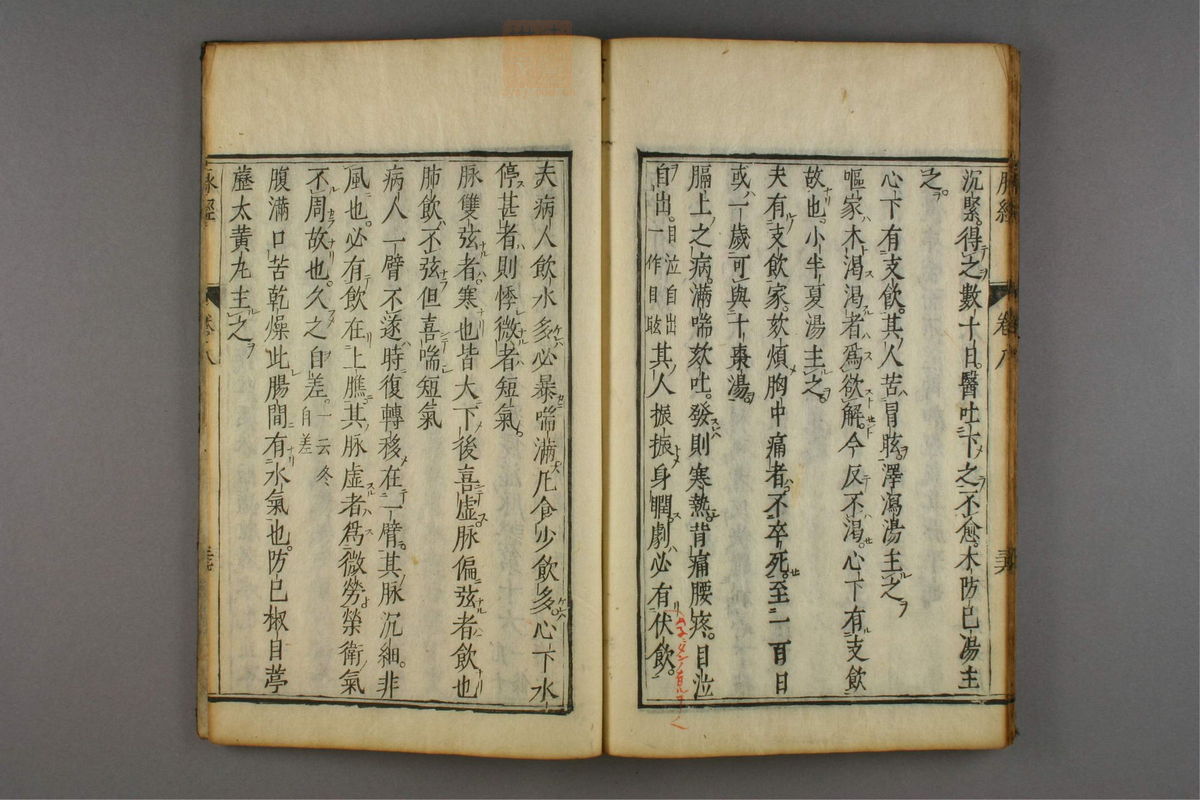 沉緊得之數十日醫吐下之不愈木防已湯主
之
心下有支飲其人苦冒眩澤瀉湯主之
嘔家木渴渴者爲欲解今反不渴心下有支飲
故也小半夏湯主之
夫有支飲家欬煩胸中痛者不卒死至一百日
或一歲可與十棗湯
膈上之病滿喘欬吐發則寒熱背痛腰疼目泣
自出目泣自出一作目眩其人振振身瞤劇必有伏飲
夫病人飲水多必暴喘滿凡食少飲多心下水
停甚者則悸微者短氣
脉雙弦者寒也皆大下後喜虛脉偏弦者飲也
肺飲不弦但喜喘短氣
病人一臂不遂時復轉移在一臂其脉沉細非
風也必有飲在上膲其脉虛者爲微勞榮衛氣
不周故也久之自差一云冬自差
腹滿口苦乾燥此腸間有水氣也防已椒目葶
藶大黃丸主之
脉經
卷八